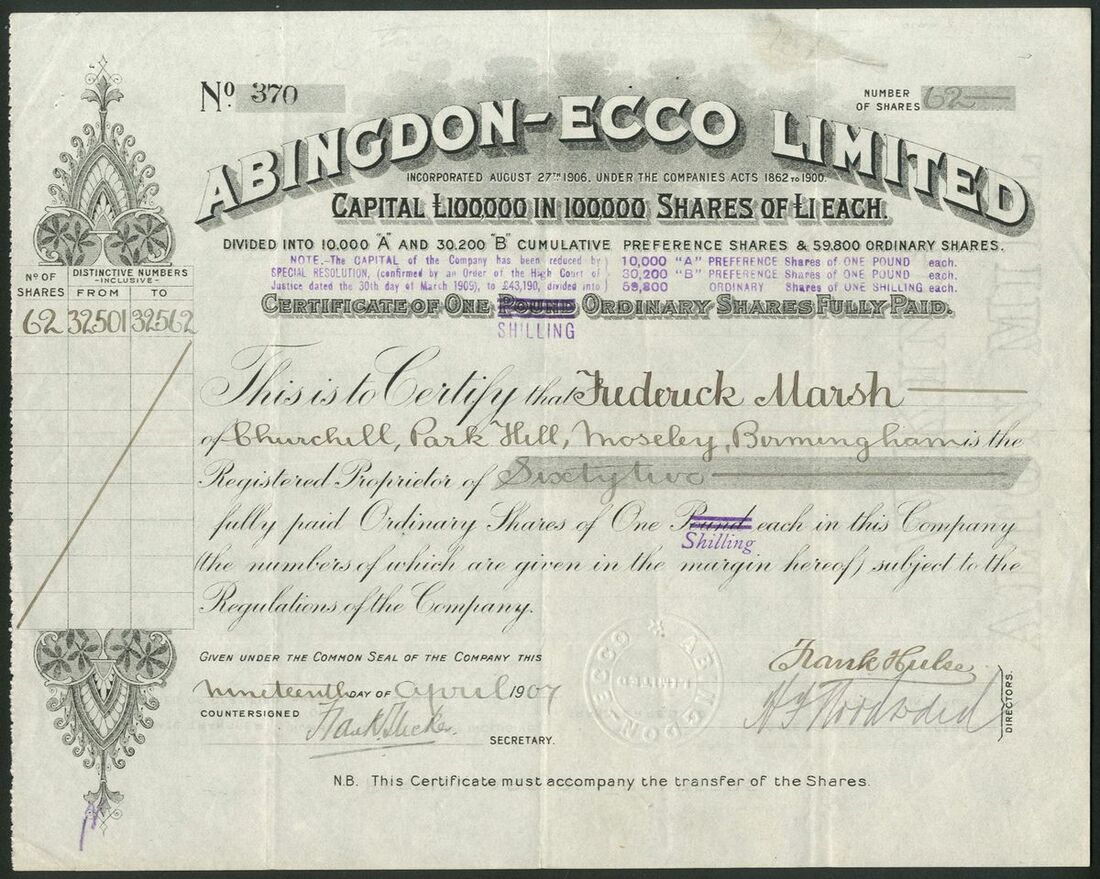 Nº 370
NUMBER OF SHARES 62
ABINGDON-ECCO LIMITED
INCORPORATED AUGUST 27TH 1906. UNDER THE COMPANIES ACTS 1862 TO 1900.
CAPITAL £100000 IN 100000 SHARES OF £1 EACH.
DIVIDED INTO 10.000 "A" AND 30.200 "B" CUMULATIVE PREFERENCE SHARES & 59.800 ORDINARY SHARES.
NOTE.-The CAPITAL of the Company has been reduced by SPECIAL RESOLUTION, (confirmed by an Order of the High Court of Justice dated the 30th day of March 1909), to £43,190, divided into
10,000 "A" PREFERENCE Shares of ONE POUND each.
30,200 "B" PREFERENCE Shares of ONE POUND each.
59,800 ORDINARY Shares of ONE SHILLING each.
CERTIFICATE OF ONE POUND ORDINARY SHARES FULLY PAID.
SHILLING
Nº OF SHARES
DISTINCTIVE NUMBERS
-INCLUSIVE-
FROM TO
62 32501 32562
This is to Certify that Frederick Marsh
of Churchill, Park Hill, Moseley, Birmingham is the
Registered Proprietor of Sixty two
fully paid Ordinary Shares of One Pound each in this Company
Shilling
(the numbers of which are given in the margin hereof) subject to the
Regulations of the Company.
GIVEN UNDER THE COMMON SEAL OF THE COMPANY THIS
nineteenth DAY OF April 1907
COUNTERSIGNED
SECRETARY.
ABINGDON-ECCO
LIMITED
Frank Hulse
DIRECTORS.
N.B. This Certificate must accompany the transfer of the Shares.